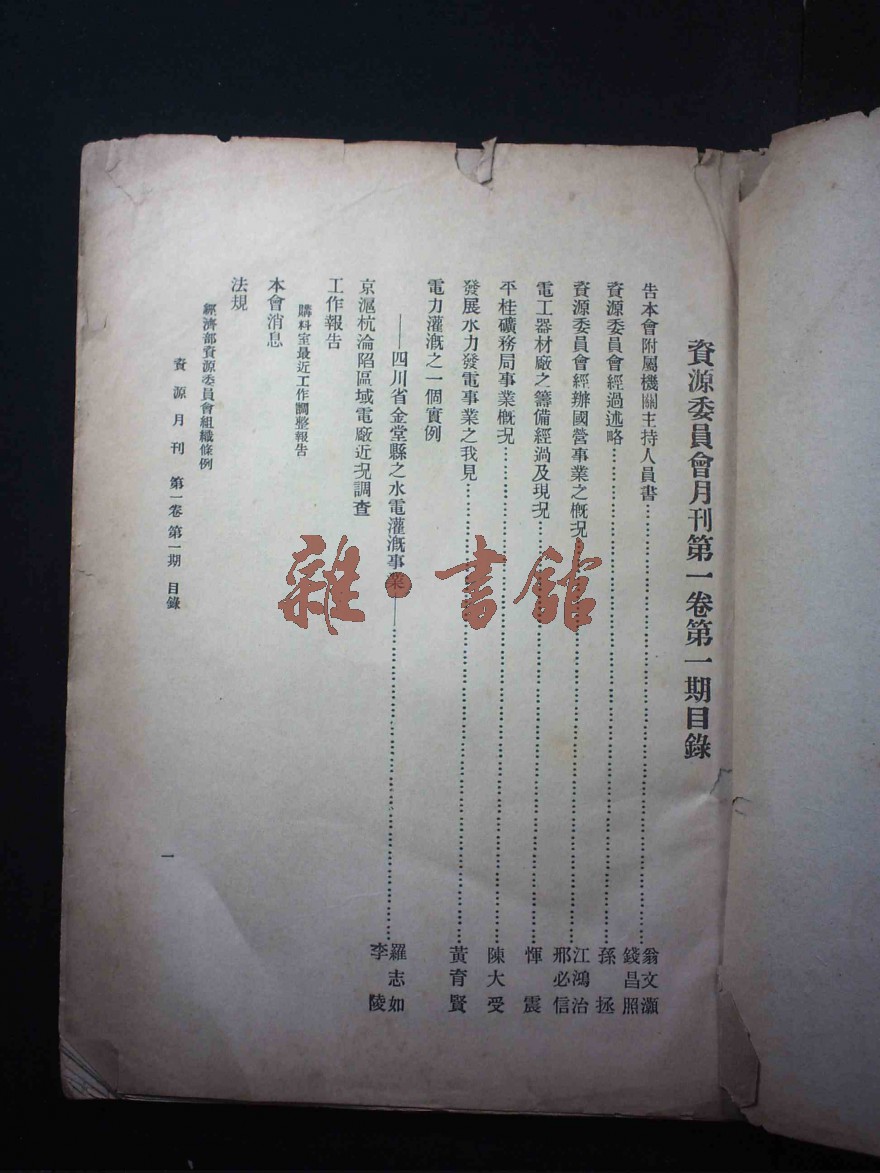 資源委員會月刊第一卷第一期目錄
告本會附屬機關主持人員書……翁文灝 錢昌照
資源委員會經過述略……孫拯
資源委員會經辦國營事業之概况……江鴻治 邢必信
電工器材廠之籌備經過及現况……惲震
平桂礦務局事業概况……陳大受
發展水力發電事業之我見……黃育賢
電力灌溉之一個實例
——四川省金堂縣之水電灌溉事業——……羅志如 李陵
京滬杭淪陷區域電廠近况調查
工作報告
購料室最近工作調整報告
本會消息
法規
經濟部資源委員會組織條例
資源月刊 第一卷第一期 目錄
一
雜·書館